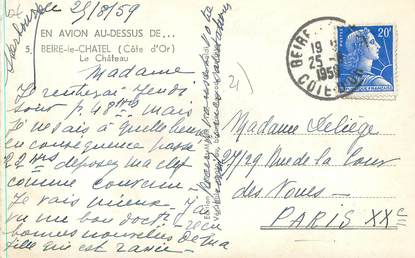 25/8/59
EN AVION AU-DESSUS DE...
5. BEIRE-le-CHATEL (Côte d'Or)
Le Château
Madame
Je rentrerai Jeudi
pour p. 48 mais
Je ne sais à quelle heure
en conséquence
22 déposez ma clef
comme convenu
Je vais mieux - J'ai
vu un bon doct. reçu
bonnes nouvelles de ma
fille qui est ravie
Recevez
salutations
21
BEIRE
19
25
1959
COTE-D'OR
20F
Madame Leliège
27/29 Rue de la Cour
des Noues -
PARIS XXe